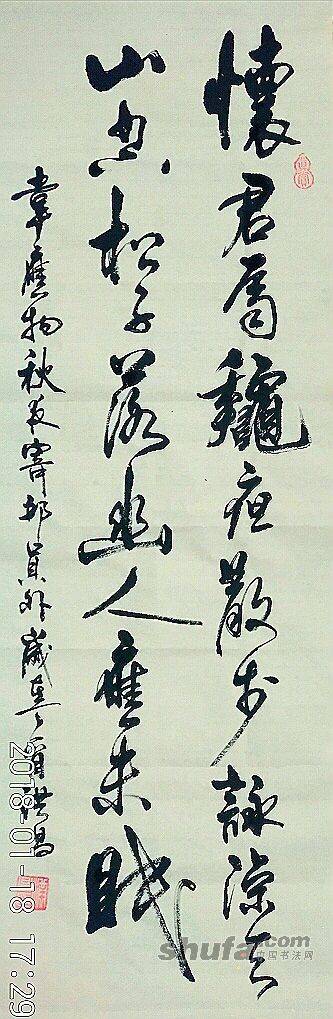 懷君屬龝夜散步詠涼天
山空松子落幽人應未眠
韋應物秋夜寄邱員外歲在丁酉
2018-01-18 17:29
shufa.com
中国书法网